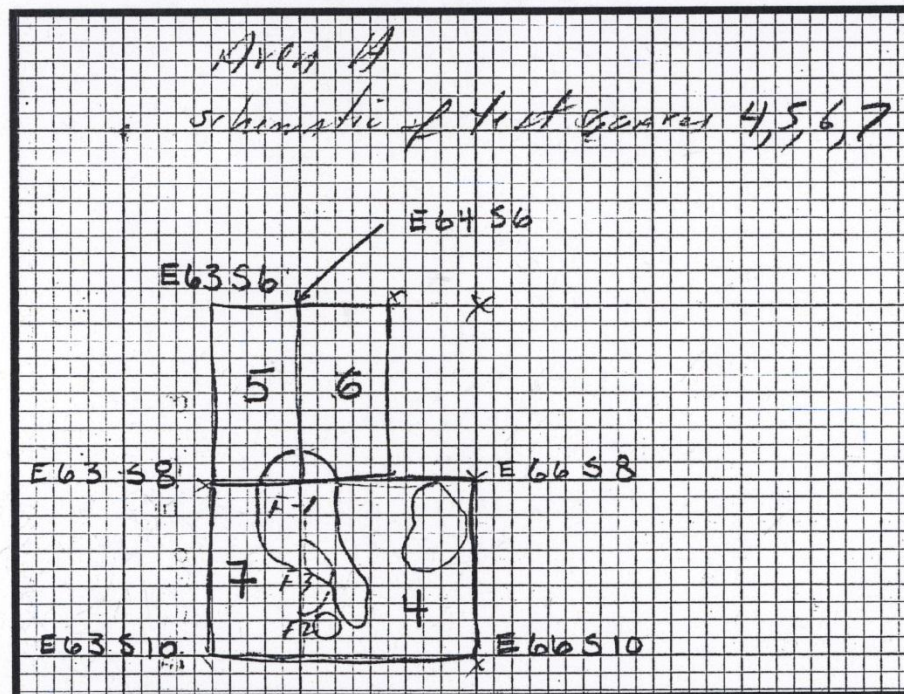 Area A
schematic of test squares 4,5,6,7
E64 S6
E63 S6
5 6
E63 S8 E66 S8
F-1
7
F3
4
F2
E63 S10 E66 S10